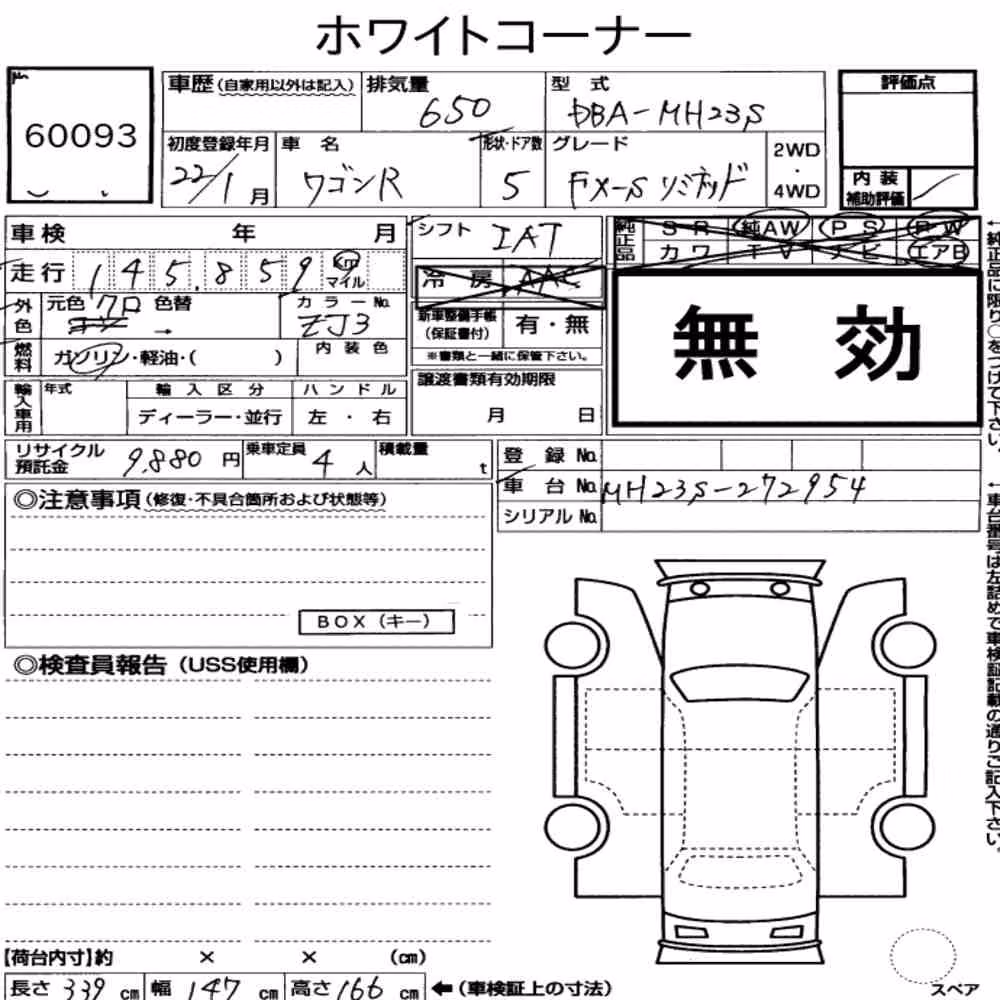 ホワイトコーナー
60093
車歴(自家用以外は記入) 排気量 650 型式 DBA-MH23S 評価点
初度登録年月 22/1月 車名 ワゴンR 形状・ドア数 5 グレード FX-S リミテッド 2WD・4WD
内装補助評価
車検 年 月 シフト IAT 純正品 SR 純AW PS PW
カワ TV ナビ エアB
走行 145,859 km マイル 冷房 AAC
外色 元色 クロ 色替 → カラーNo. ZJ3 新車整備手帳(保証書付) 有・無
※書類と一緒に保管下さい。
無効
燃料 ガソリン・軽油・( ) 内装色
輸入車用 年式 輸入区分 ハンドル 譲渡書類有効期限
ディーラー・並行 左・右 月 日
リサイクル預託金 9,880円 乗車定員 4人 積載量 t
登録No.
車台No. MH23S-272954
シリアルNo.
◎注意事項(修復・不具合箇所および状態等)
BOX(キー)
◎検査員報告(USS使用欄)
【荷台内寸】約 × × (cm)
長さ 339 cm 幅 147 cm 高さ 166 cm ←(車検証上の寸法)
スペア
←純正品に限り○をつけて下さい。
←車台番号は左詰めで車検証記載の通りご記入下さい。